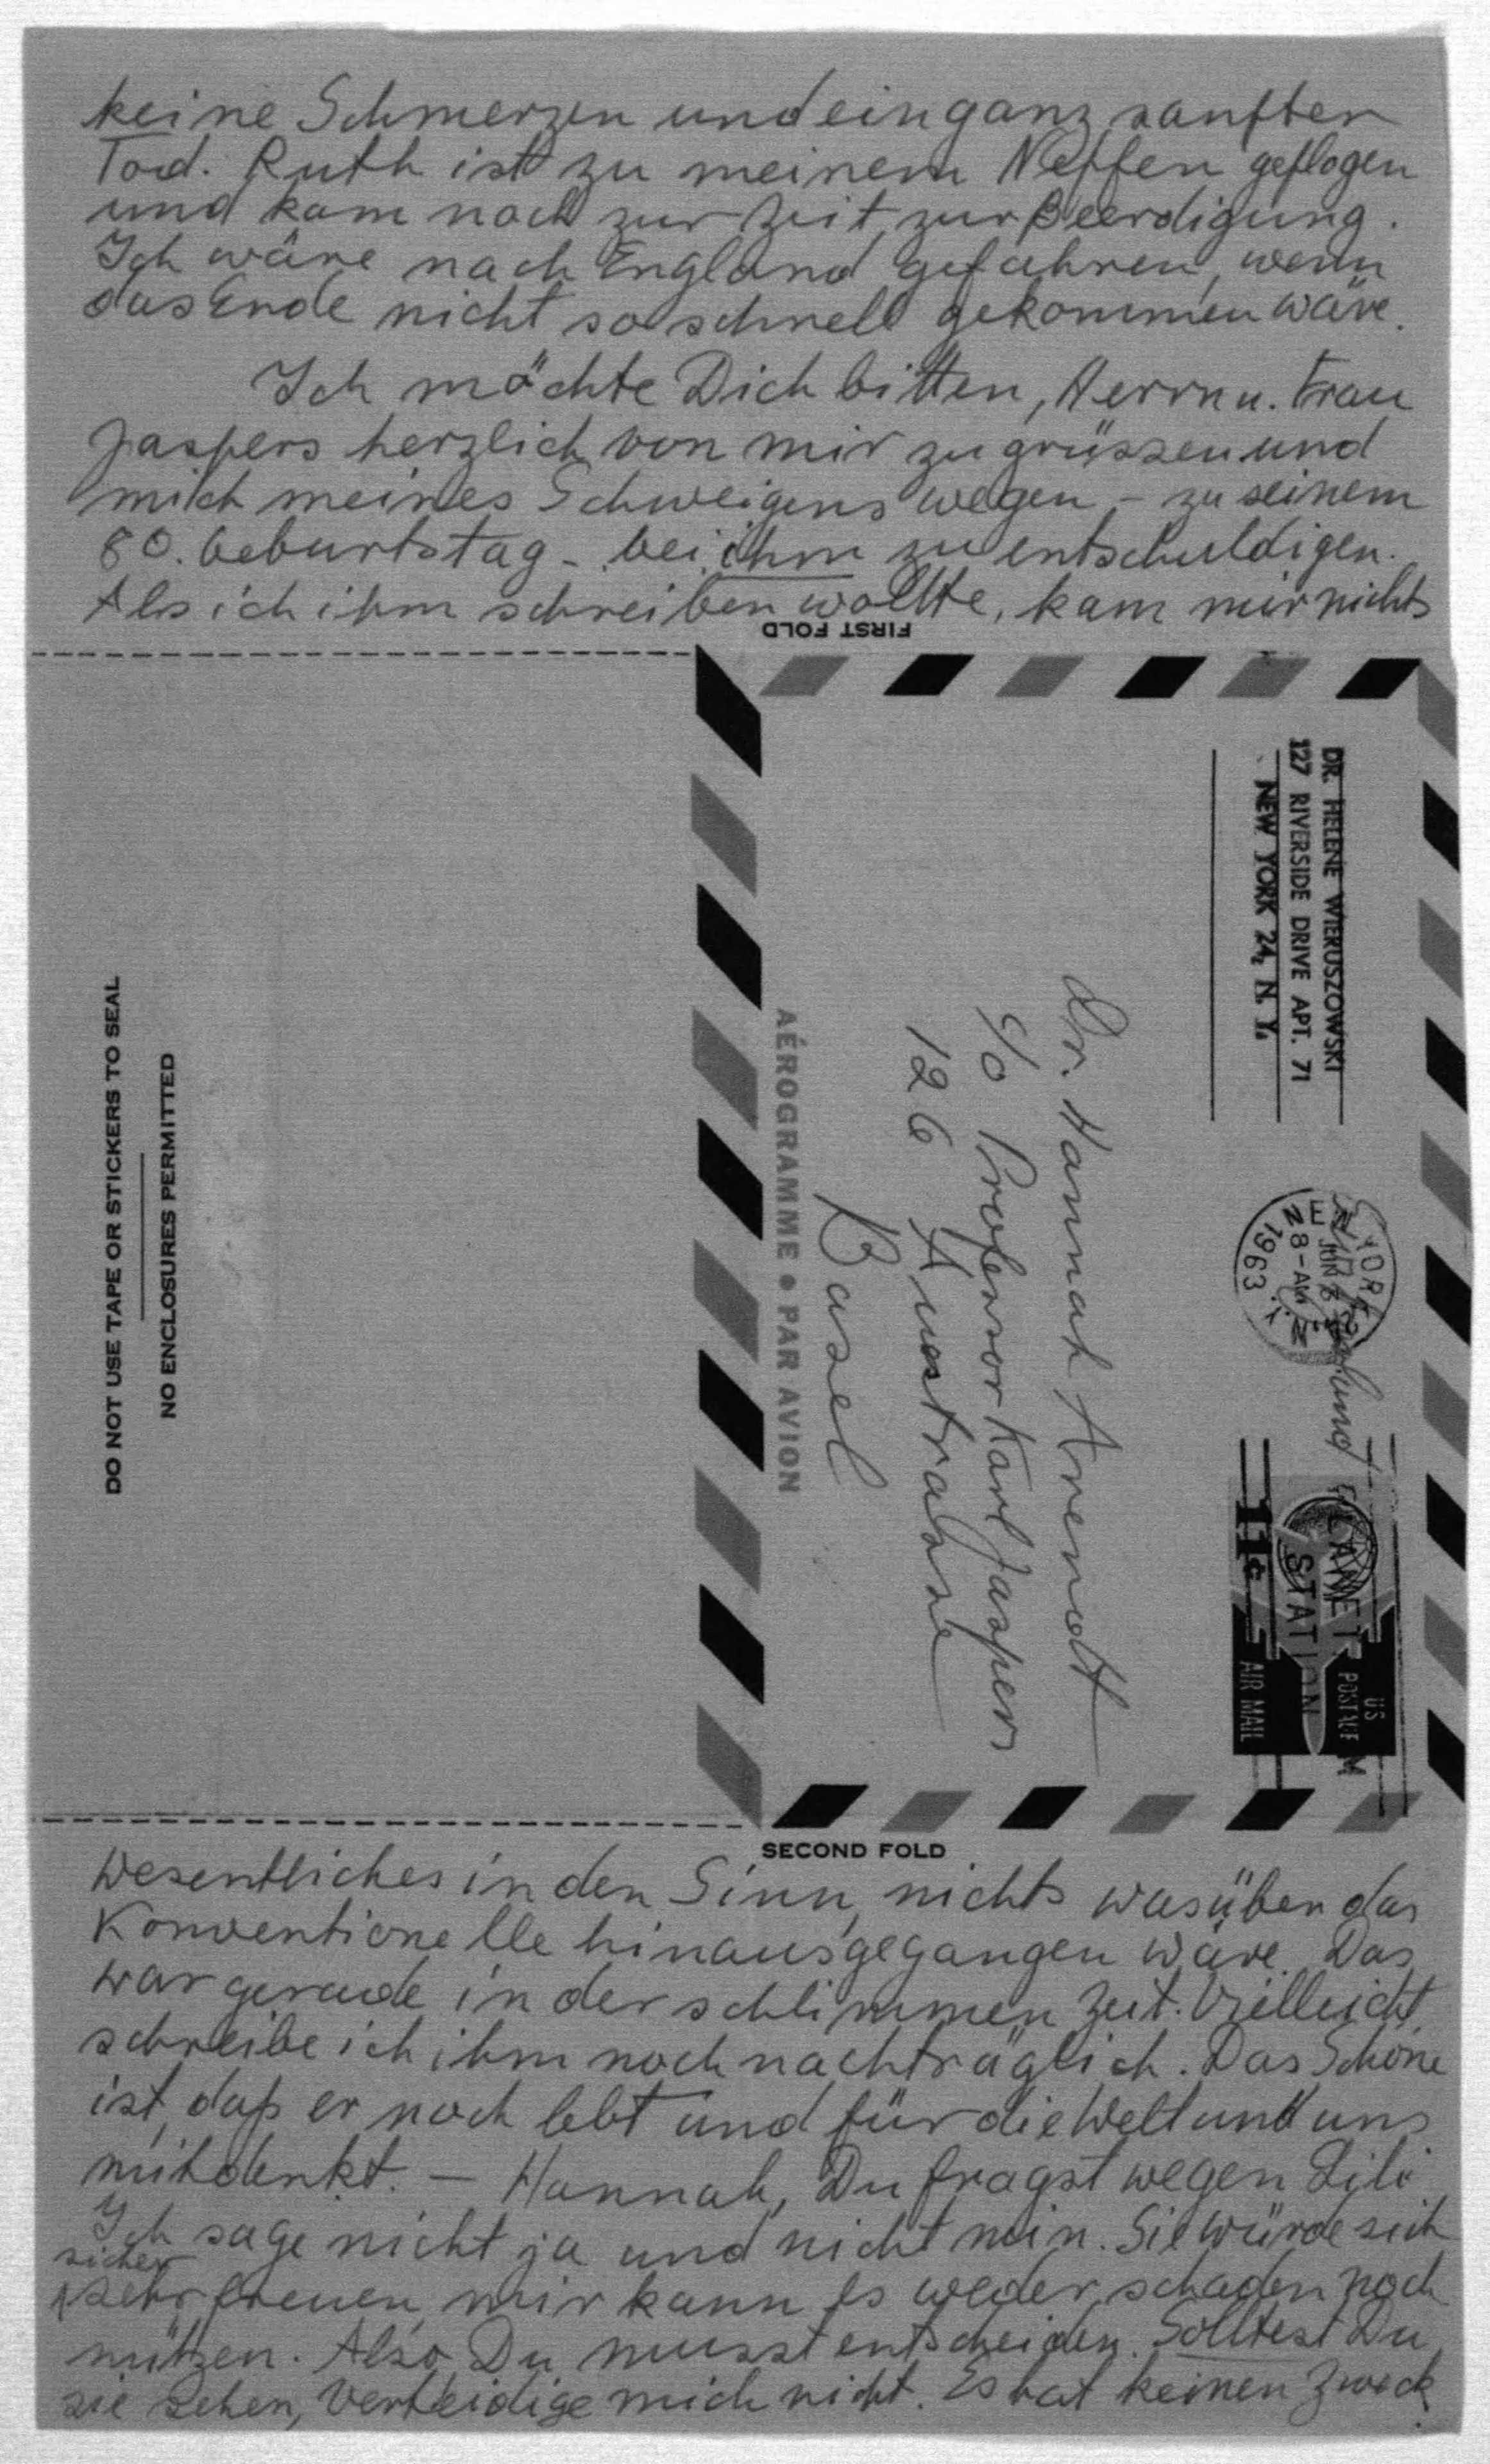 keine Schmerzen und ein ganz sanfter
Tod. Ruth ist zu meinem Neffen geflogen
und kam noch zur Zeit zur Beerdigung.
Ich wäre nach England gefahren, wenn
das Ende nicht so schnell gekommen wäre.
Ich möchte Dich bitten, Herrn u. Frau
Jaspers herzlich von mir zu grüssen und
mich meines Schweigens wegen – zu seinem
80. Geburtstag – bei ihm zu entschuldigen.
Als ich ihm schreiben wollte, kam mir nichts
FIRST FOLD
DR. HELENE WIERUSZOWSKI
127 RIVERSIDE DRIVE APT. 71
NEW YORK 24, N. Y.
NEW YORK, N.Y.
JUN
8-AM
1963
PLANET
STATION
US
POSTAGE
11c
AIR MAIL
Dr. Hannah Arendt
c/o Professor Karl Jaspers
126 Austrasse
Basel
AÉROGRAMME • PAR AVION
NO ENCLOSURES PERMITTED
DO NOT USE TAPE OR STICKERS TO SEAL
SECOND FOLD
wesentliches in den Sinn, nichts was über das
Konventionelle hinausgegangen wäre. Das
war gerade in der schlimmen Zeit. Vielleicht
schreibe ich ihm noch nachträglich. Das Schöne
ist, daß er noch lebt und für die Welt und uns
mitdenkt. – Hannah, Du fragst wegen Lili
Ich sage nicht ja und nicht nein. Sie würde sich
sicher
sehr freuen, mir kann es weder schaden noch
nützen. Also Du musst entscheiden. Solltest Du
sie sehen, verteidige mich nicht. Es hat keinen Zweck.